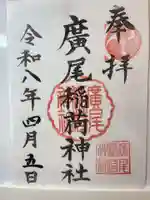 奉拝
廣尾稲荷神社
令和八年四月五日